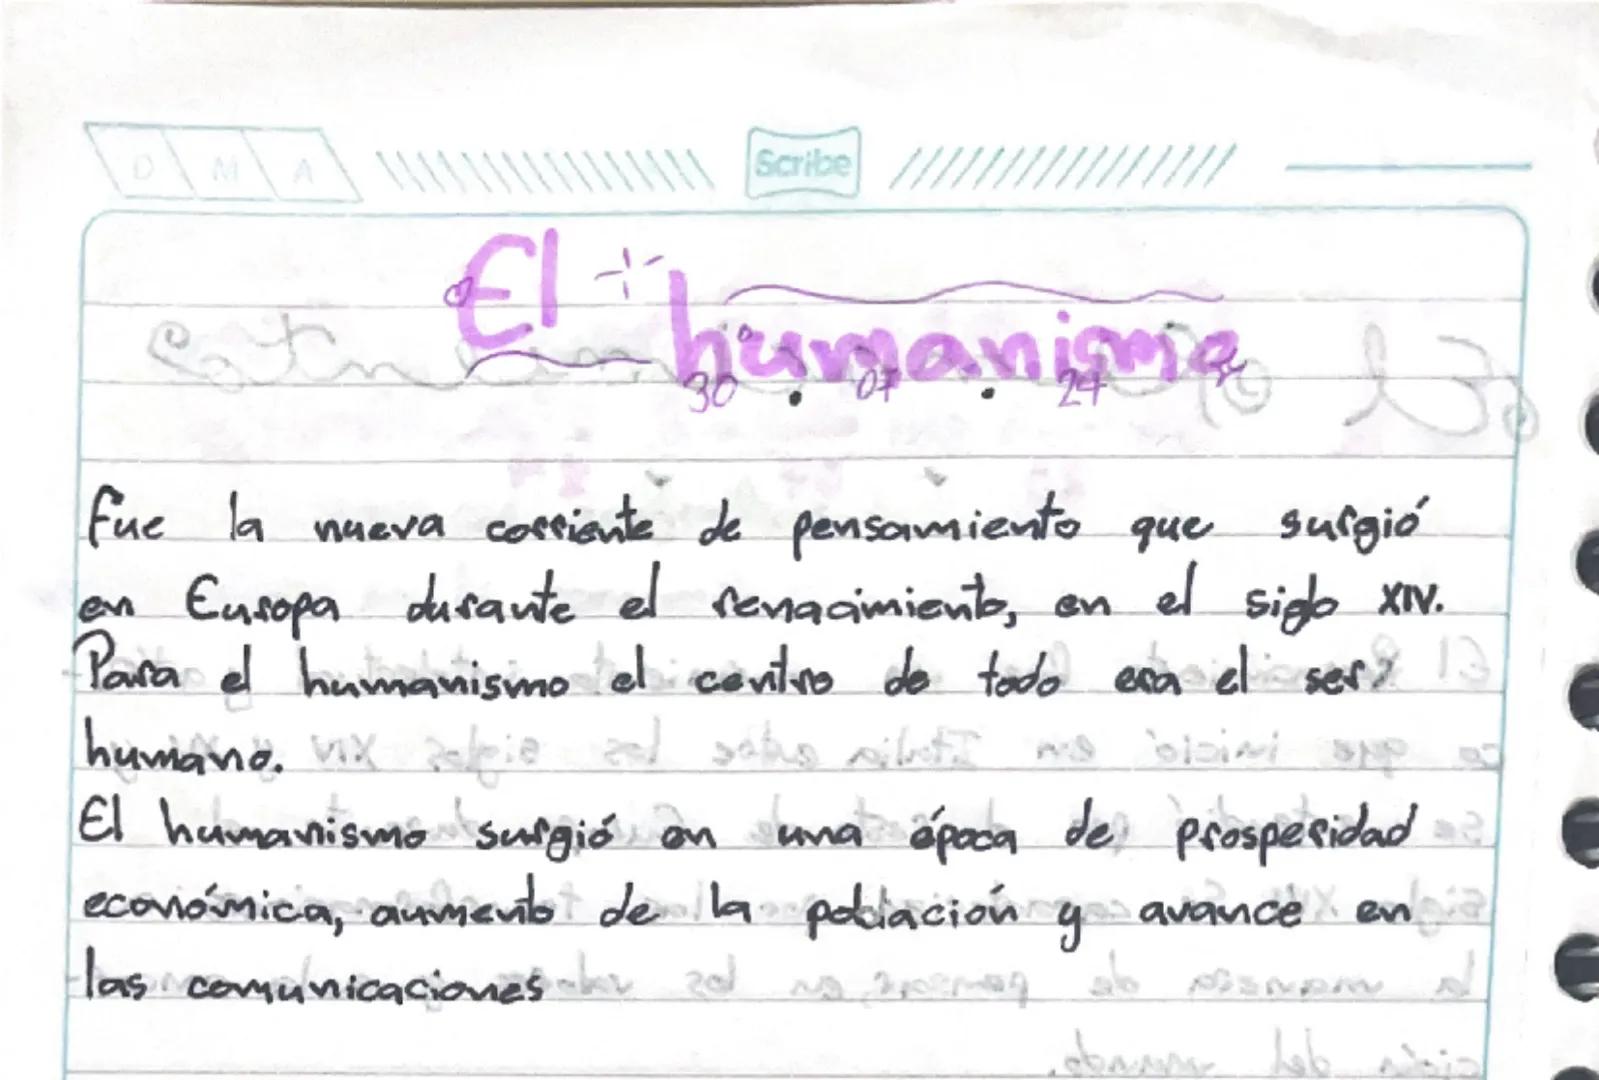 D M A Scribe
El humanismo
30 . 07 . 24
Fue la nueva corriente de pensamiento que surgió
en Europa durante el renacimiento, en el siglo XIV.
Para el humanismo el centro de todo era el ser
humano.
El humanismo surgió en una época de prosperidad
económica, aumento de la población y avance en
las comunicaciones